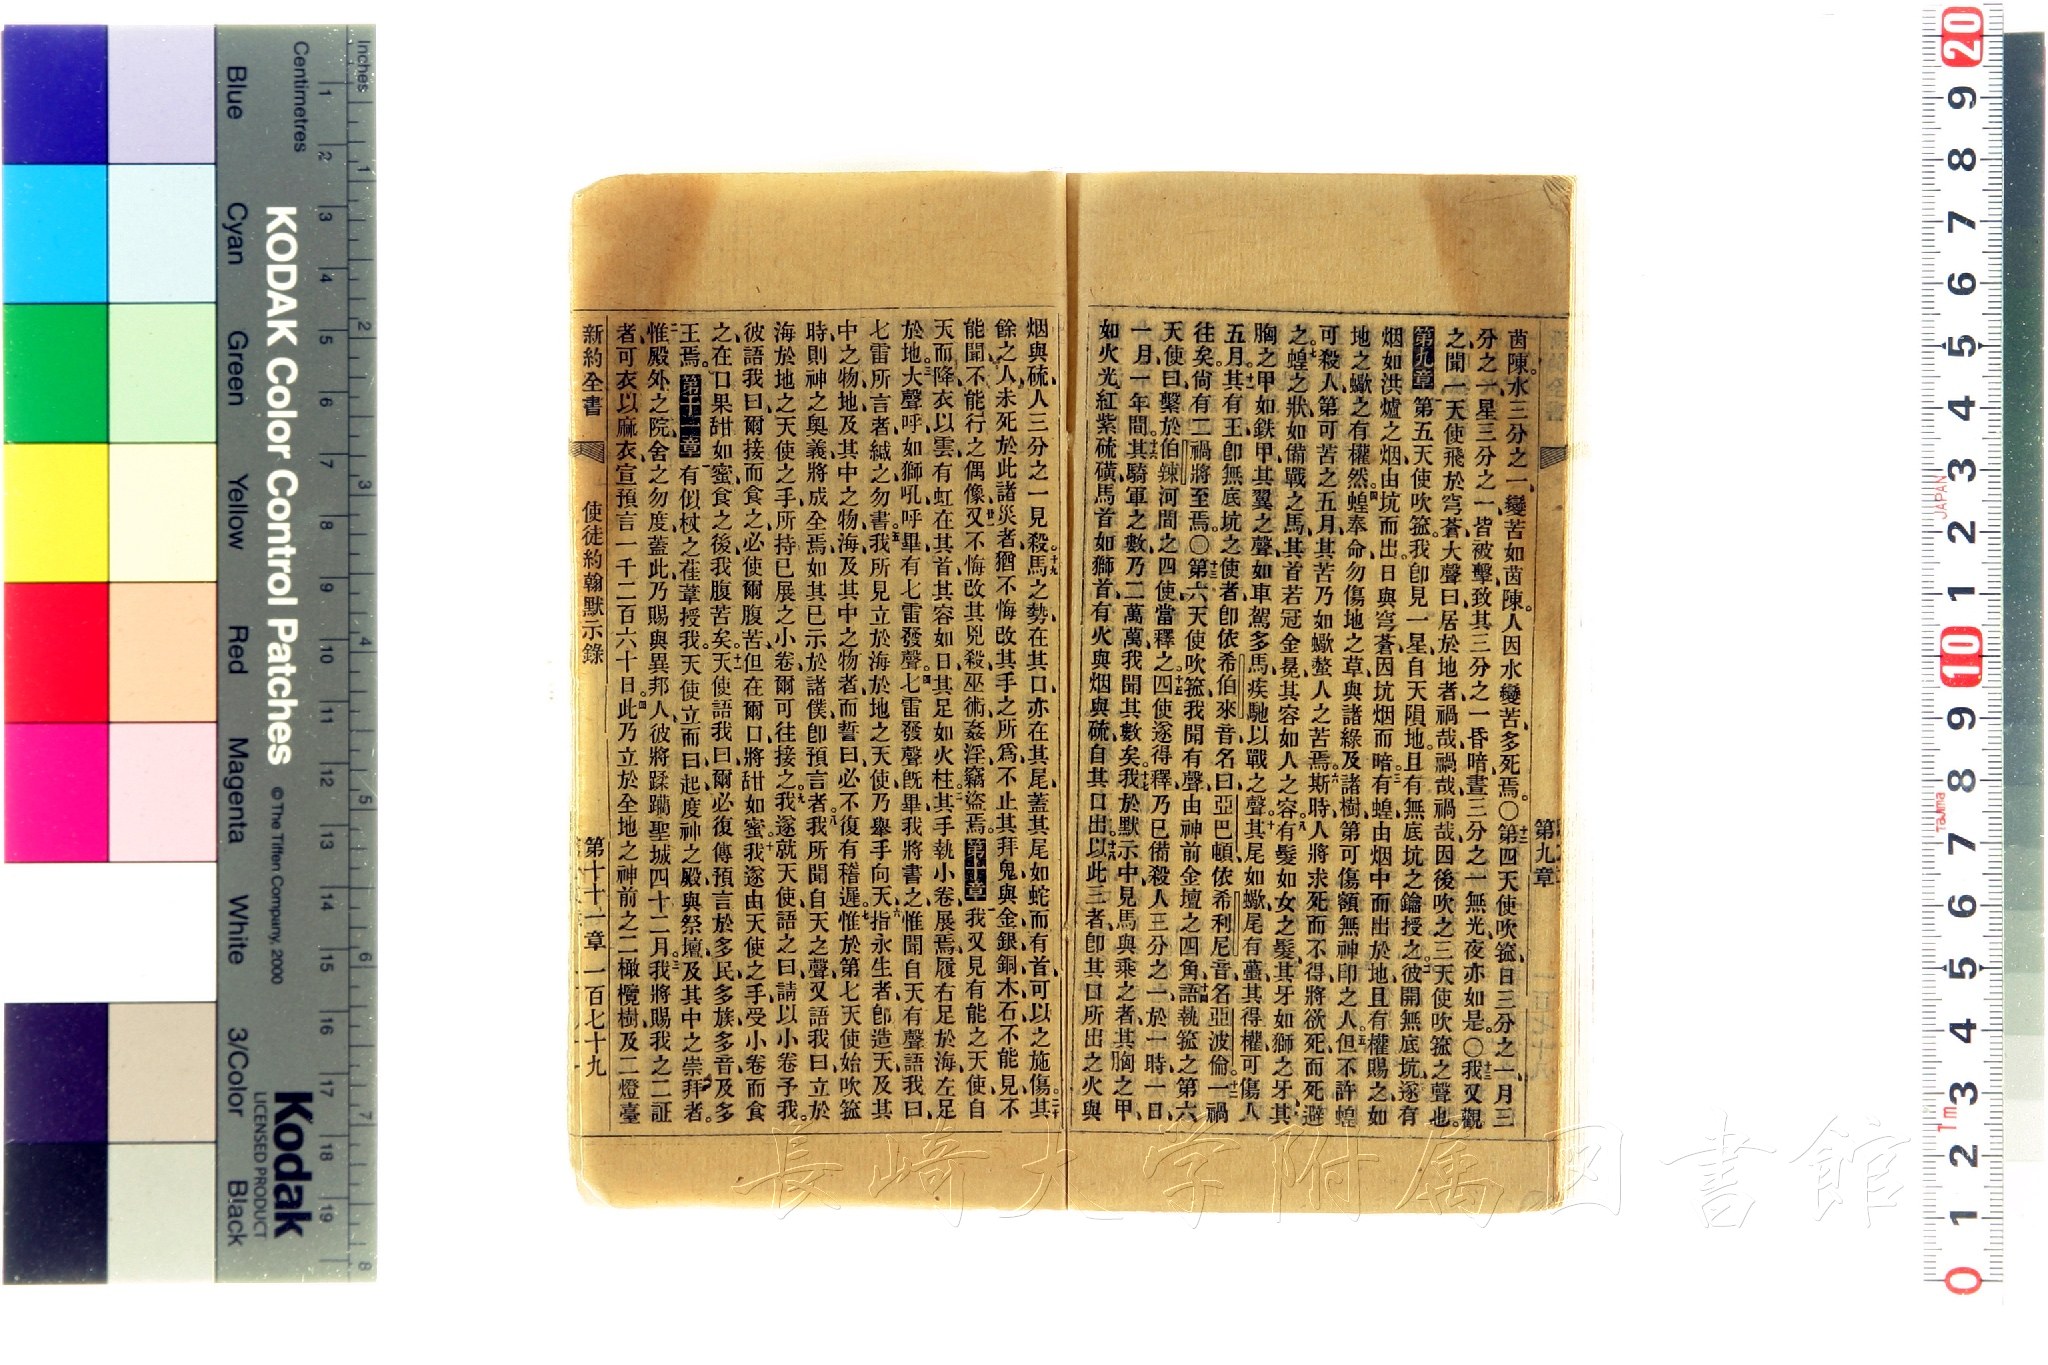 茵陳水三分之一變苦如茵陳人因水變苦多死焉○第四天使吹箛日三分之一月三
分之一星三分之一皆被擊致其三分之一昏暗晝三分之一無光夜亦如是○我又觀
之聞一天使飛於穹蒼大聲曰居於地者禍哉禍哉禍哉因後吹之三天使吹箛之聲也
第九章 第五天使吹箛我卽見一星自天隕地且有無底坑之鑰授之彼開無底坑遂有
烟如洪爐之烟由坑而出日與穹蒼因坑烟而暗有蝗由烟中而出於地且有權賜之如
地之蠍之有權然蝗奉命勿傷地之草與諸綠及諸樹第可傷額無神印之人但不許蝗
可殺人第可苦之五月其苦乃如蠍螫人之苦焉斯時人將求死而不得將欲死而死避
之蝗之狀如備戰之馬其首若冠金冕其容如人之容有髮如女之髮其牙如獅之牙其
胸之甲如鉄甲其翼之聲如車駕多馬疾馳以戰之聲其尾如蠍尾有蠆其得權可傷人
五月其有王卽無底坑之使者卽依希伯來音名曰亞巴頓依希利尼音名亞波倫一禍
往矣尙有二禍將至焉○第六天使吹箛我聞有聲由神前金壇之四角語執箛之第六
天使曰繫於伯辣河間之四使當釋之四使遂得釋乃已備殺人三分之一於一時一日
一月一年間其騎軍之數乃二萬萬我聞其數矣我於默示中見馬與乘之者其胸之甲
如火光紅紫硫磺馬首如獅首有火與烟與硫自其口出以此三者卽其口所出之火與
第九章
烟與硫人三分之一見殺馬之勢在其口亦在其尾蓋其尾如蛇而有首可以之施傷其
餘之人未死於此諸災者猶不悔改其手之所爲不止其拜鬼與金銀銅木石不能見不
能聞不能行之偶像又不悔改其兇殺巫術姦淫竊盜焉 第十章 我又見有能之天使自
天而降衣以雲有虹在其首其容如日其足如火柱其手執小卷展焉履右足於海左足
於地大聲呼如獅吼呼畢有七雷發聲七雷發聲旣畢我將書之惟聞自天有聲語我曰
七雷所言者緘之勿書我所見立於海於地之天使乃舉手向天指永生者卽造天及其
中之物地及其中之物海及其中之物者而誓曰必不復有稽遲惟於第七天使始吹箛
時則神之奧義將成全焉如其已示於諸僕卽預言者我所聞自天之聲又語我曰立於
海於地之天使之手所持已展之小卷爾可往接之我遂就天使語之曰請以小卷予我
彼語我曰爾接而食之必使爾腹苦但在爾口將甜如蜜我遂由天使之手受小卷而食
之在口果甜如蜜食之後我腹苦矣天使語我曰爾必復傳預言於多民多族多音及多
王焉 第十一章 有似杖之葦葦授我天使立而曰起度神之殿與祭壇及其中之崇拜者
惟殿外之院舍之勿度蓋此乃賜與異邦人彼將蹂躪聖城四十二月我將賜我之二証
者可衣以麻衣宣預言一千二百六十日此乃立於全地之神前之二橄欖樹及二燈臺
新約全書 使徒約翰默示錄 第十十一章 一百七十九
Inches
Centimetres
KODAK Color Control Patches
© The Tiffen Company, 2000
Kodak
LICENSED PRODUCT
Blue
Cyan
Green
Yellow
Red
Magenta
White
3/Color
Black
JAPAN
Tajima
Tm
長崎大学附属図書館